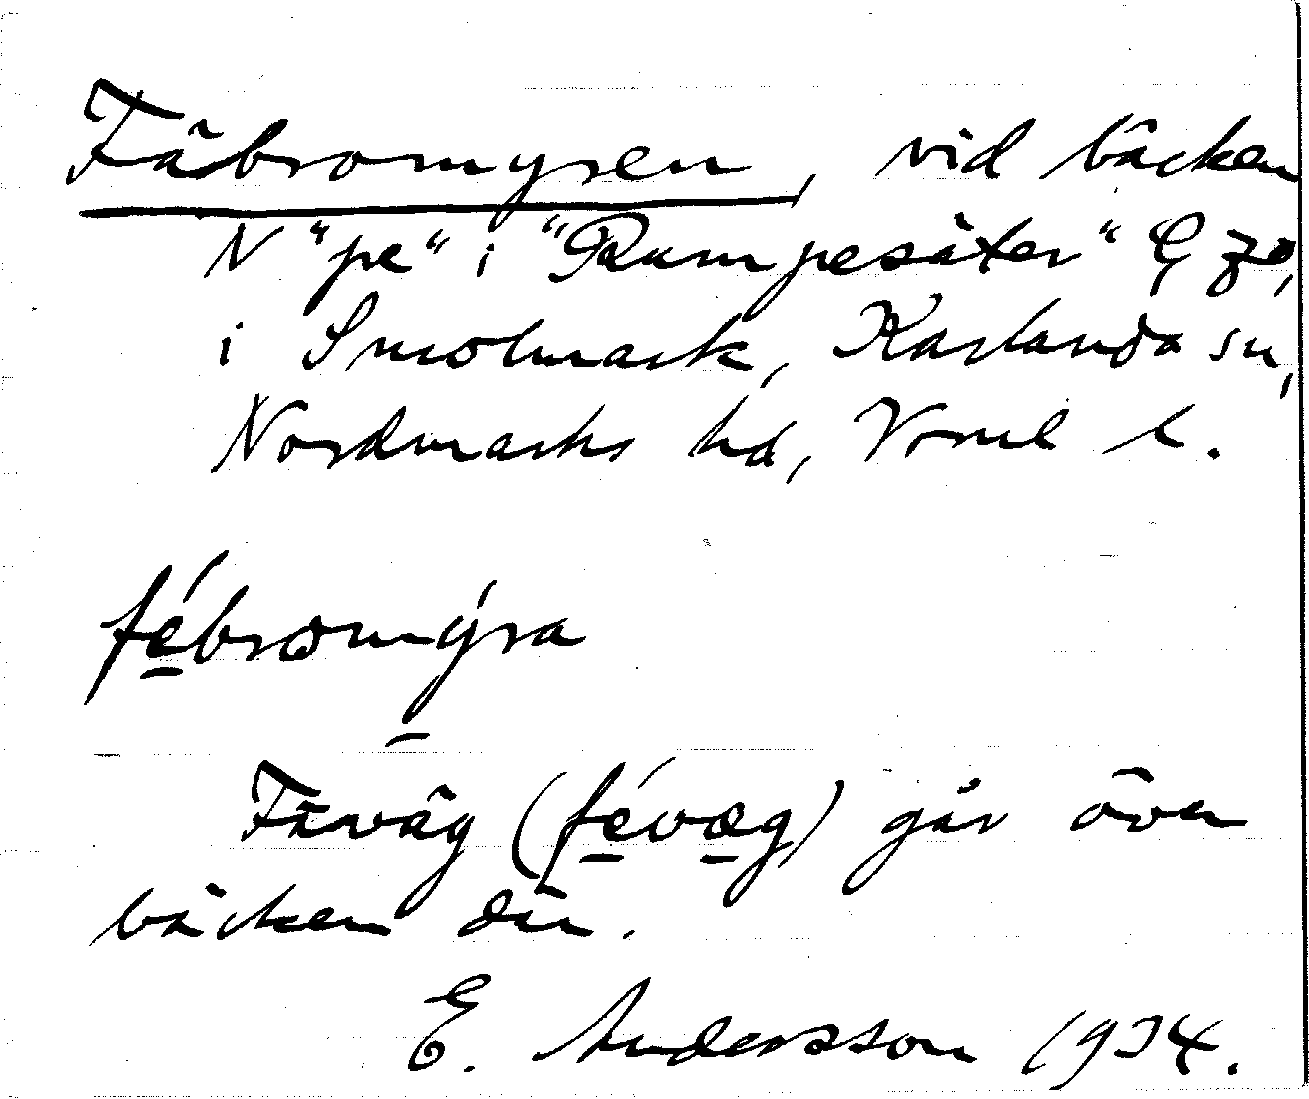 Fäbromyren, vid bäcken
N "pe" i "Rumpesäter" G 7e,
i Smolmark, Karlanda sn,
Nordmarks hd, Vrml l.
fébromýra
Fäväg (févæg) går över
bäcken där.
E. Andersson 1934.